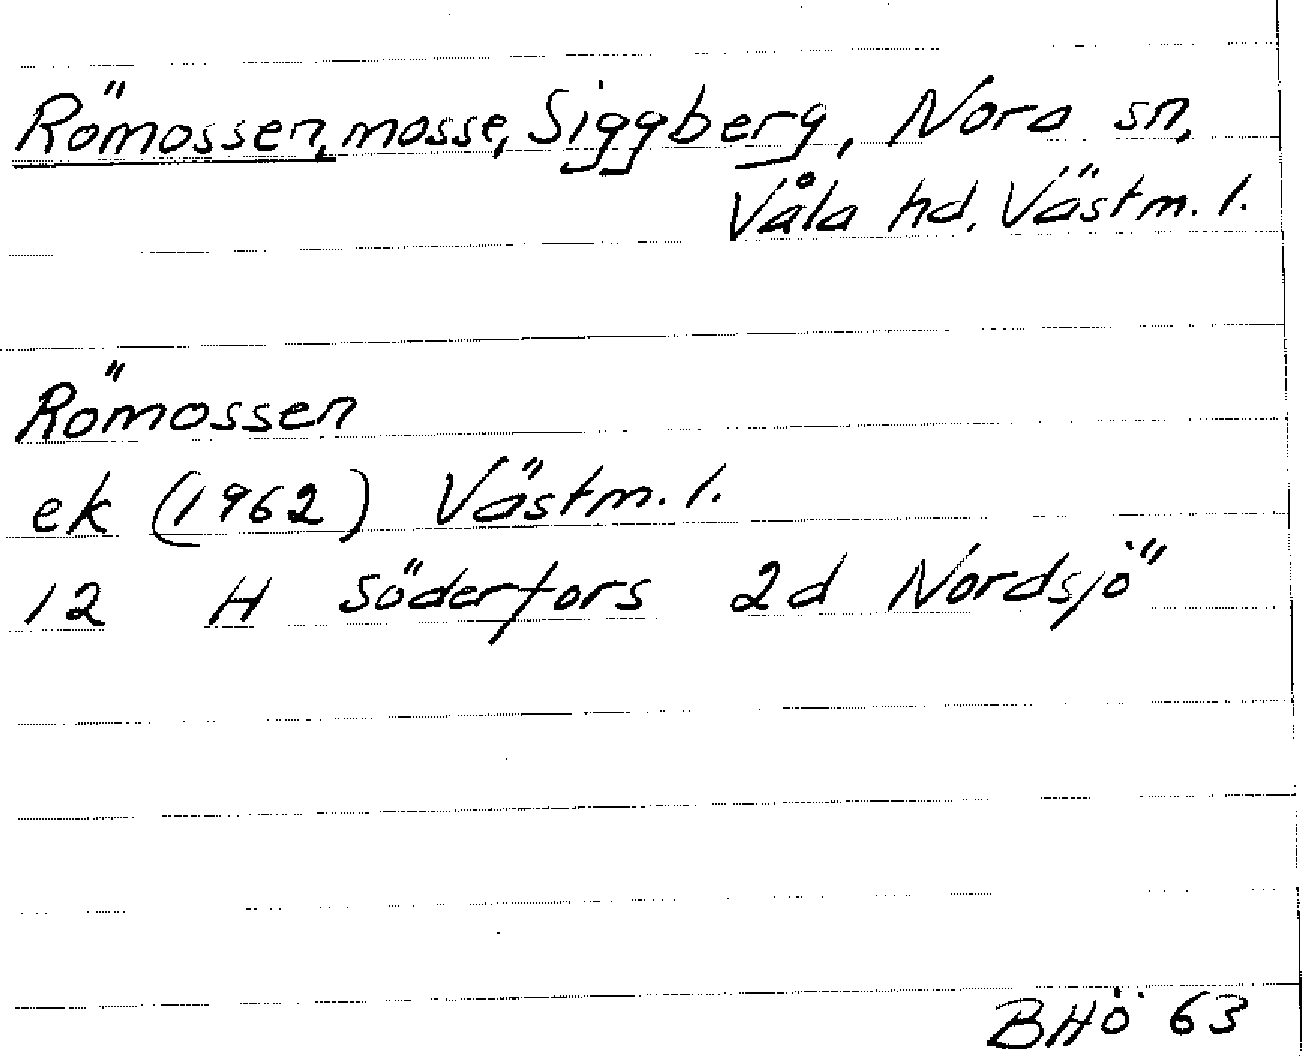 Römossen, mosse, Siggberg, Nora sn,
Våla hd, Västm. l.
Römossen
ek (1962) Västm. l.
12 H Söderfors 2d Nordsjö
BHö 63